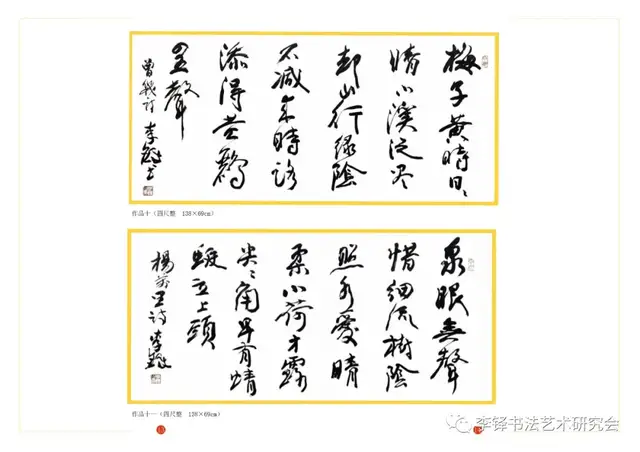 梅子黄時日〻
晴小溪泛尽
却山行绿陰
不减来時路
添得黄鹂
四五聲
曾幾诗 李
作品十（四尺整 138×69cm）
泉眼無聲
惜细流樹陰
照水愛晴
柔小荷才露
尖〻角早有蜻
蜓立上頭
楊萬里詩 李
作品十一（四尺整 138×69cm）
李铎书法艺术研究会